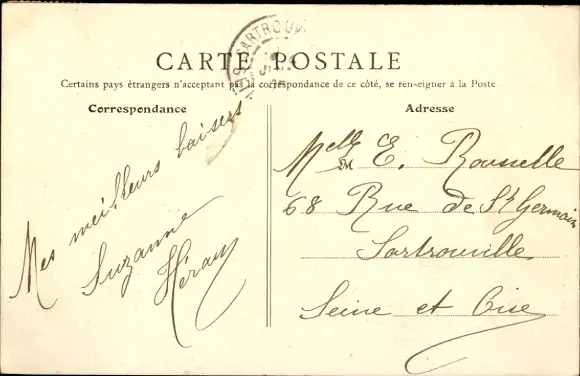 SARTROUV
CARTE POSTALE
Certains pays étrangers n'acceptant pas la correspondance de ce côté, se renseigner à la Poste.
Correspondance
Mes meilleurs baisers
Suzanne
Adresse
Melle E. Rousselle
68 Rue de St Germain
Sartrouville
Seine et Oise